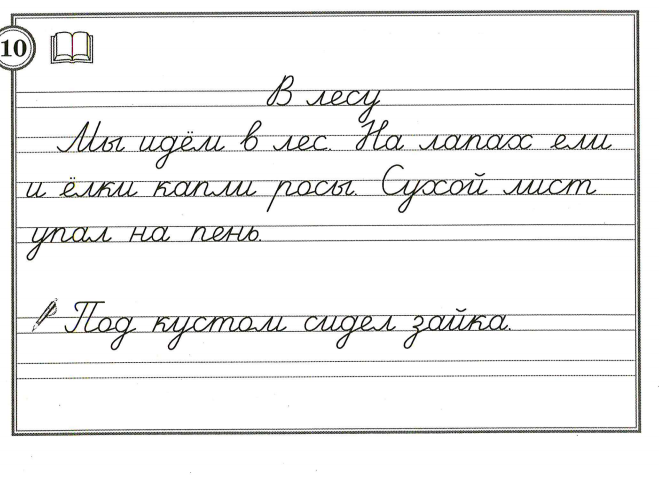 10
В лесу
Мы идём в лес. На лапах ели
и ёлки капли росы. Сухой лист
упал на пень.
Под кустом сидел зайка.